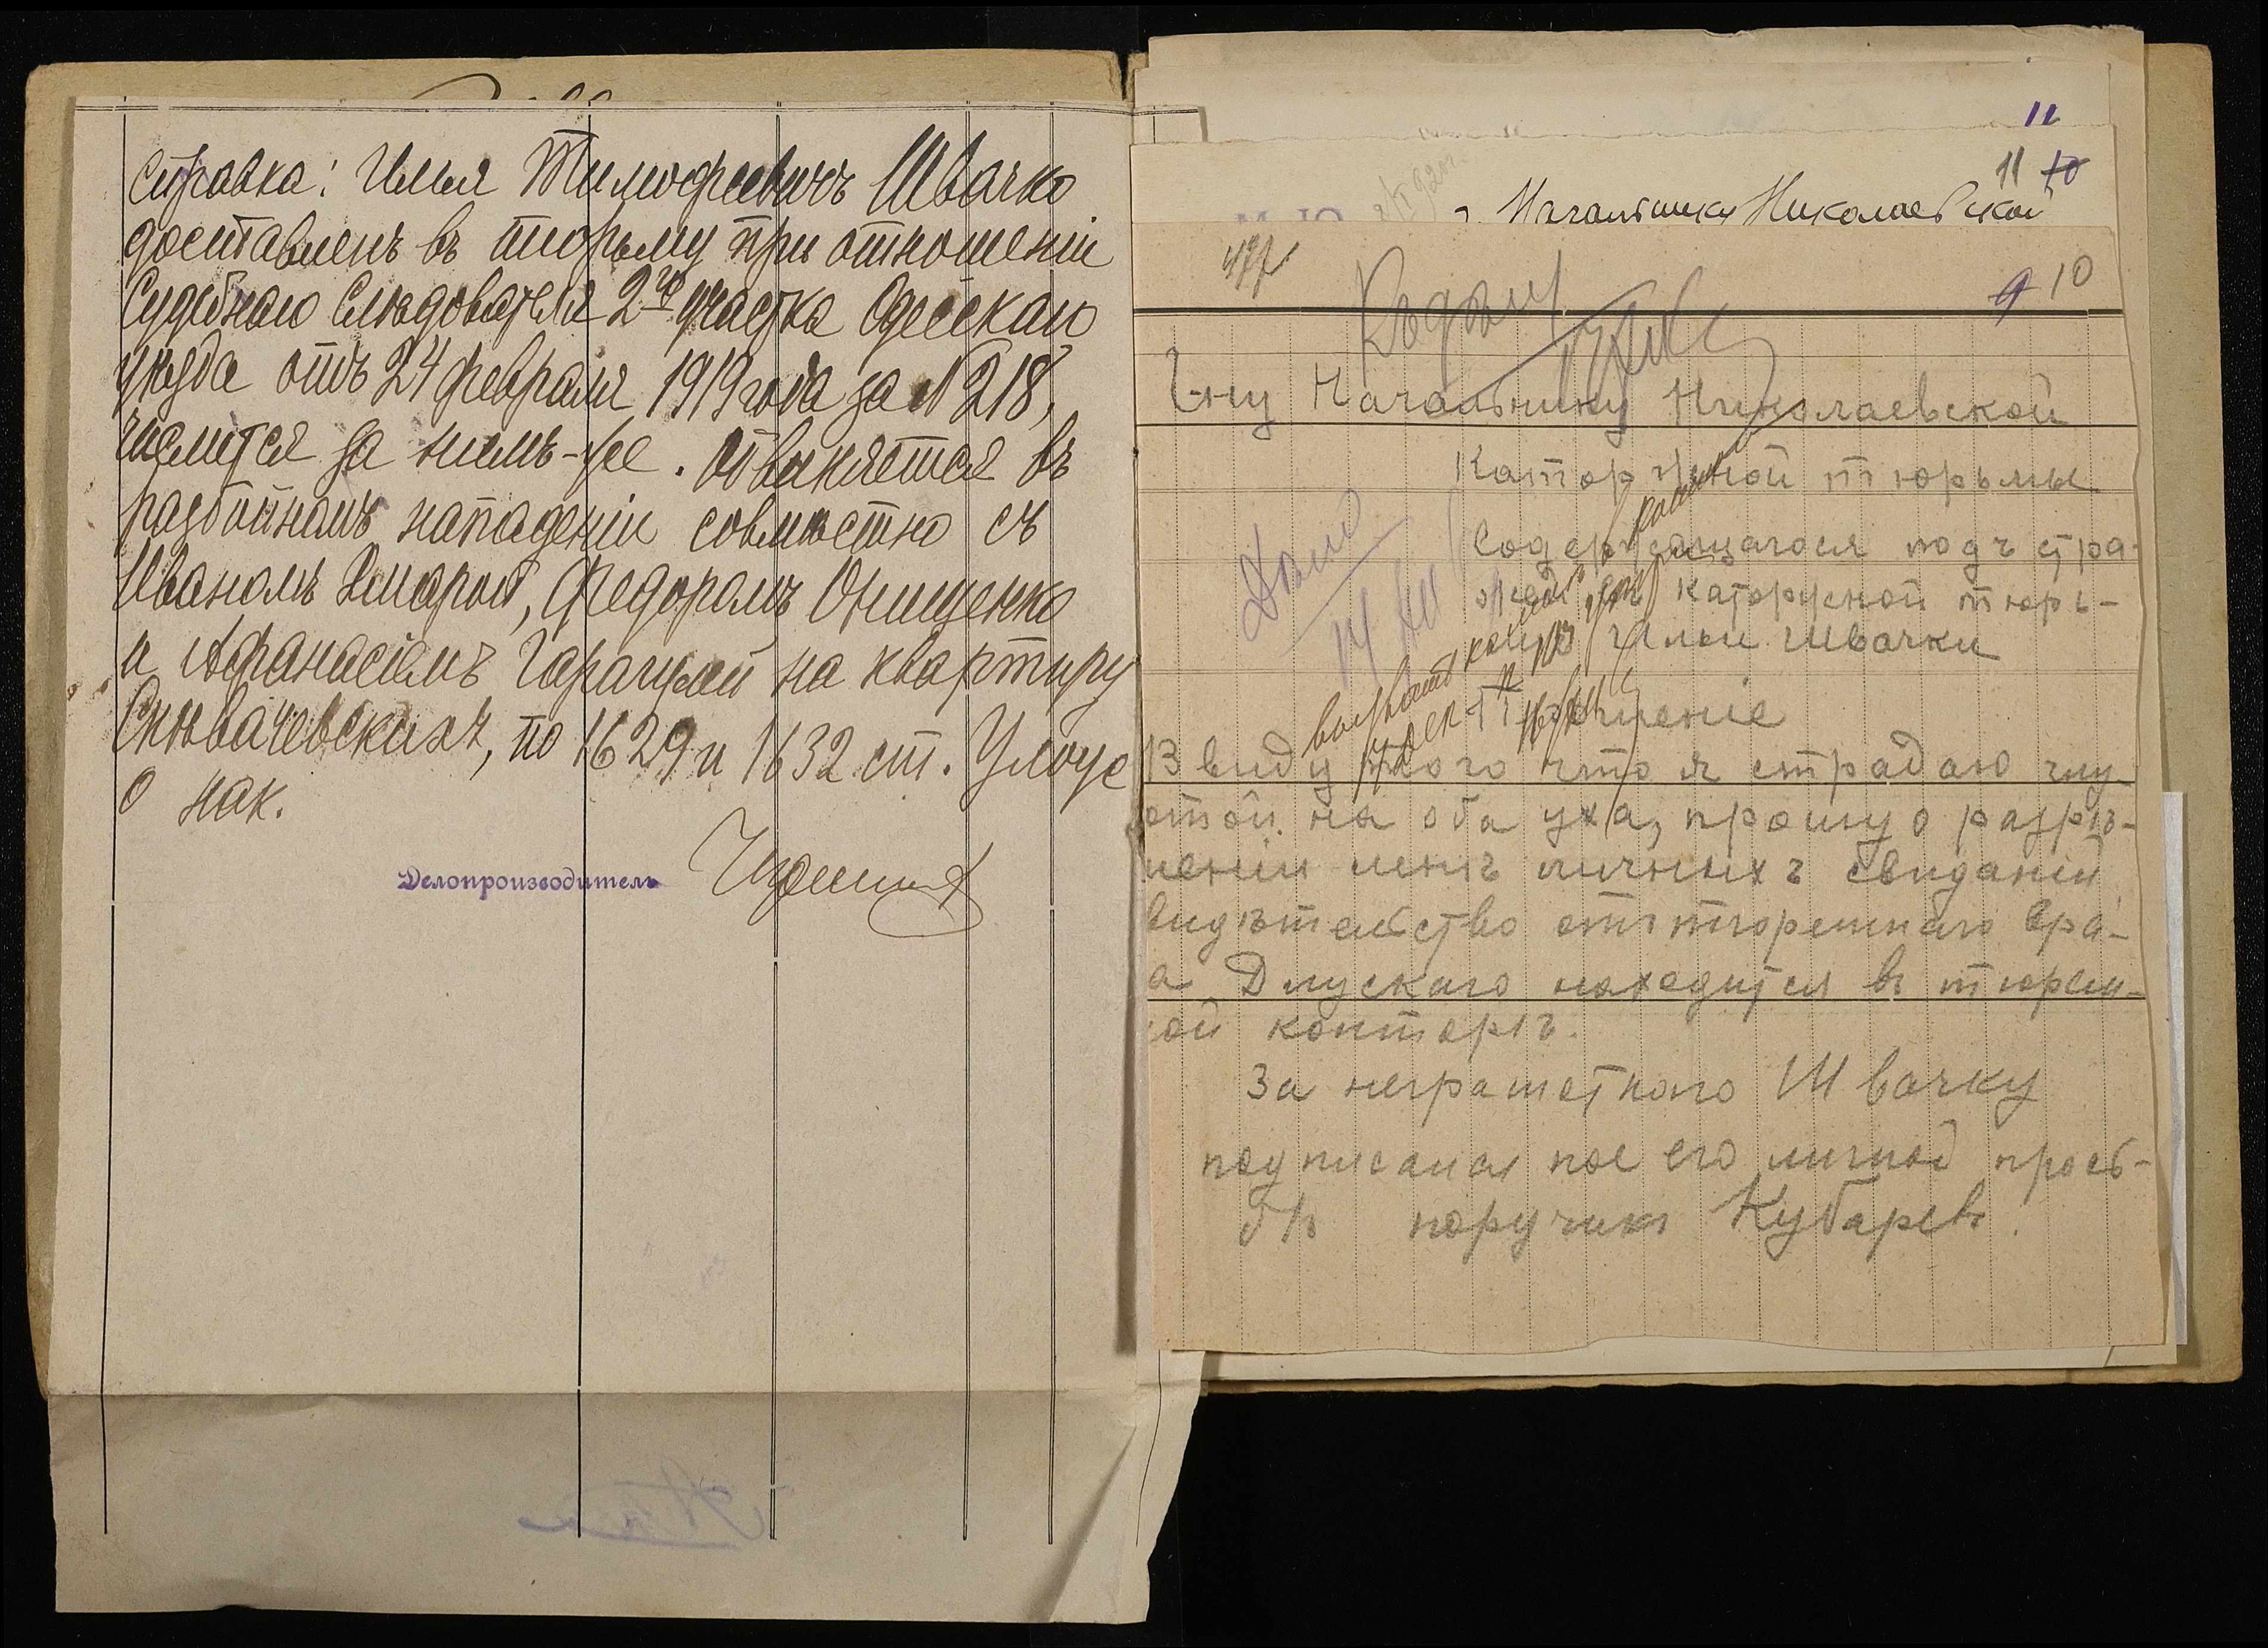 Справка: Илья Тимофеевичъ Швачко
доставленъ въ тюрьму при отношеніи
Судебнаго Слѣдователя 2го участка Одесскаго
уѣзда отъ 24 февраля 1919 года за № 218,
числится за нимъ-же. Обвиняется въ
разбойномъ нападеніи совместно съ
Иваномъ Хмарой, Федоромъ Онищенко
и Афанасіемъ Гаращей на квартиру
Скквачевскихъ, по 1629 и 1632 ст. Улож
о нак.
Делопроизводитель
11
11 10
Начальника Николаевской
477
9 10
Г-ну Начальнику Николаевской
Каторжной тюрьмы
Содержащагося подъ стра-
жей въ каторжной тюрь-
Ильи Швачки
Прошеніе
В виду того что я страдаю глу
отой на оба уха, прошу о разрѣ-
шеніи мнѣ личныхъ свиданій
видѣтельство отъ тюремнаго вра-
а Длускаго находится въ тюрем-
ой конторѣ.
За неграметного Швачку
подписалъ по его личной прось-
бѣ поручикъ Кубаревъ.